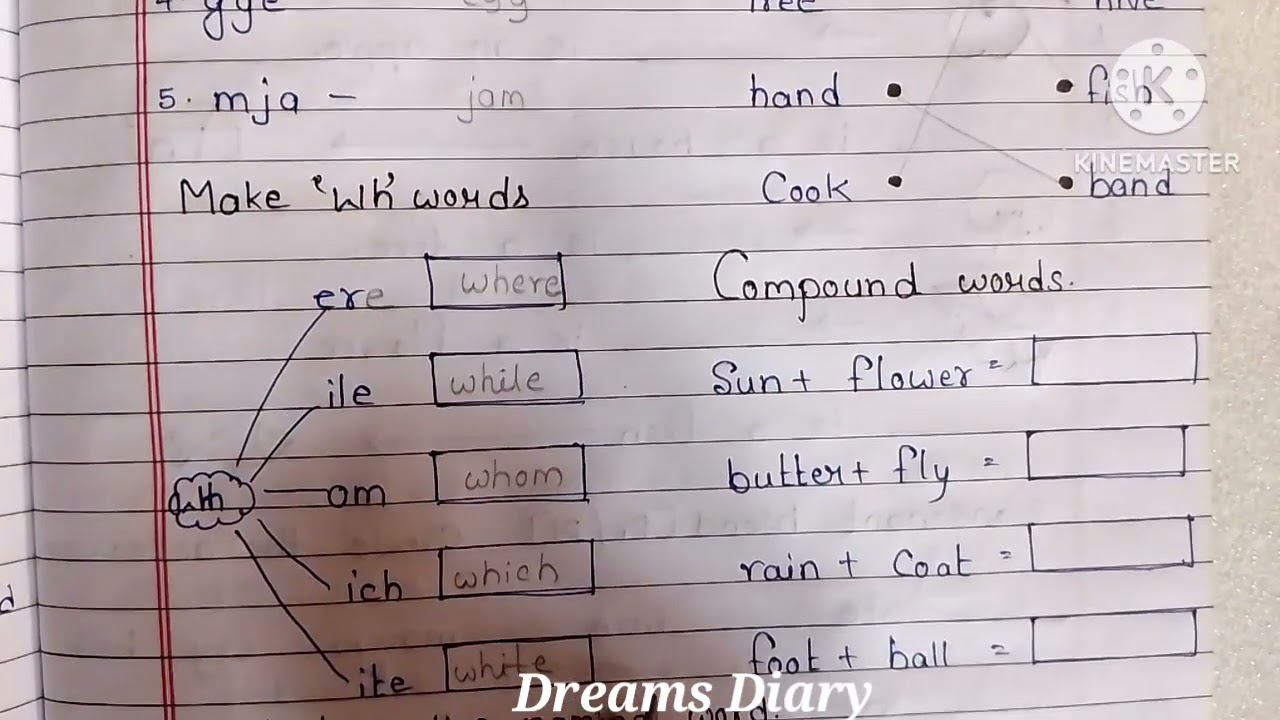 5. mja - jam hand • • fish
KINEMASTER
Make 'Wh' words Cook • • band
ere where Compound words.
ile while Sun + flower =
wh om whom butter + fly =
ich which rain + Coat =
ite white foot + ball =
Dreams Diary